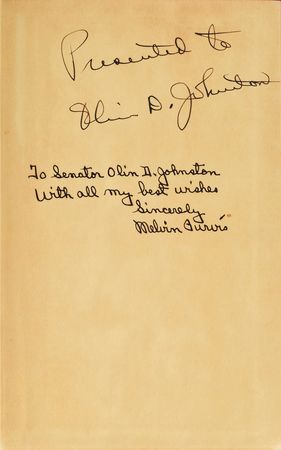 Presented to
Olin D. Johnston
To Senator Olin D. Johnston
With all my best wishes
Sincerely
Melvin Purvis